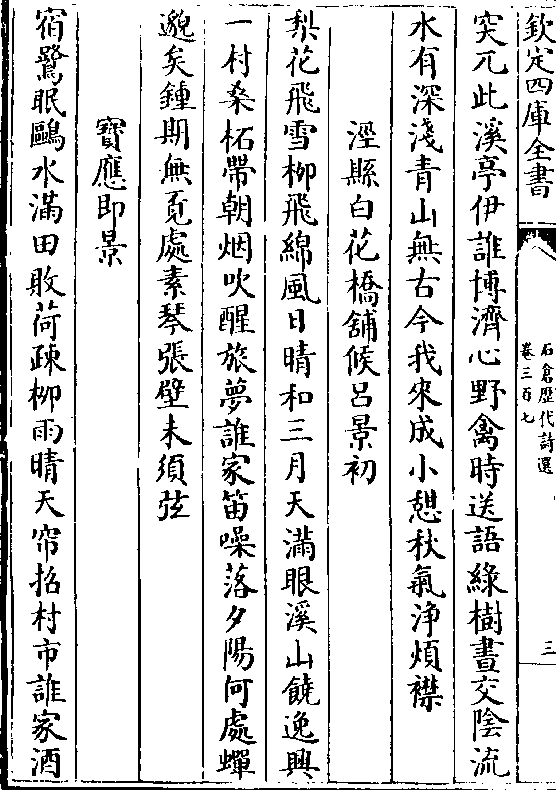 欽定四庫全書
石倉歷代詩選
卷三百七
三
突兀此溪亭伊誰博濟心野禽時送語綠樹晝交陰流
水有深淺青山無古今我來成小憩秋氣浄煩襟
涇縣白花橋舖候呂景初
梨花飛雪柳飛綿風日晴和三月天滿眼溪山饒逸興
一村桑柘帶朝烟吹醒旅夢誰家笛噪落夕陽何處蟬
邈矣鍾期無覓處素琴張壁未須弦
寶應即景
宿鷺眠鷗水滿田敗荷疎柳雨晴天帘招村市誰家酒